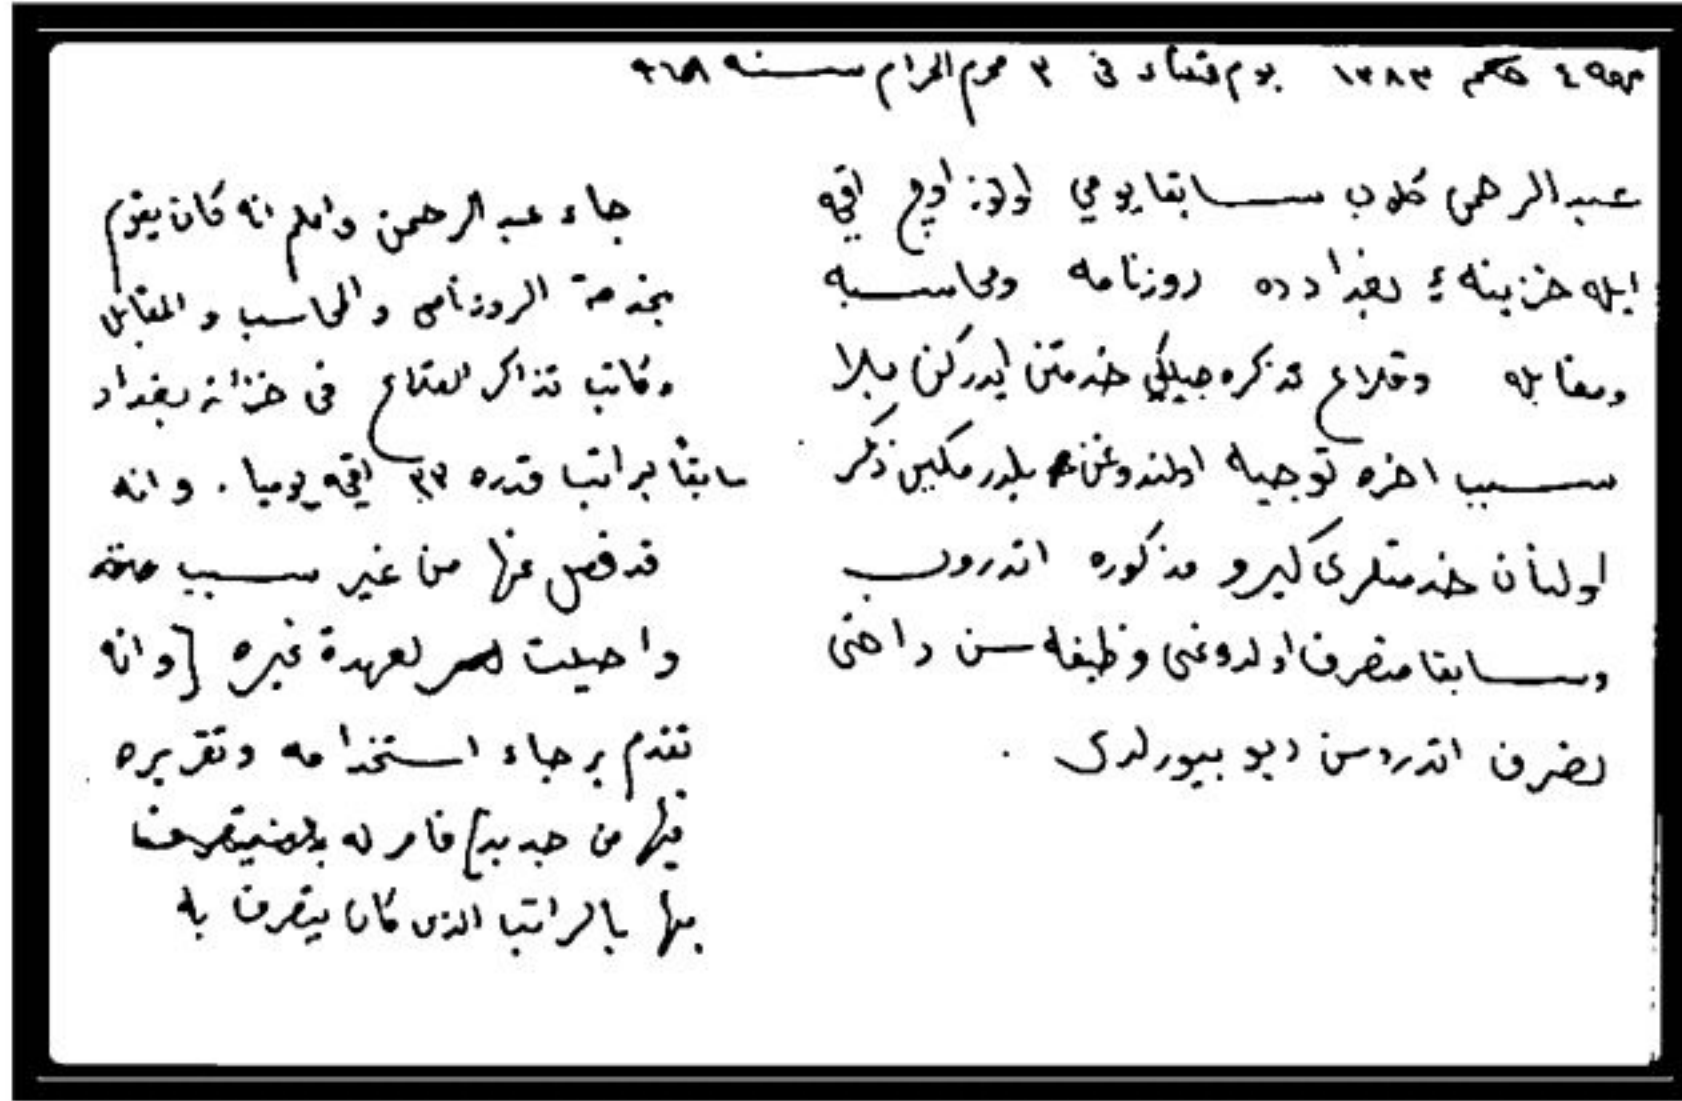 حكم ١٣٨٣ يوم في ٣ محرم الحرام سنه
عبد الرحمن كلوب سابقا يومي اوتوز اوچ اقچه
ايله خزينهٔ بغداد ده روزنامه ومحاسبه
ومقابله وقلاع تذكره جيلكي خدمتن ايدركن بلا
سبب اخره توجيه اولندوغن بلدرمكين ذكر
اولنان خدمتلرى كيرو مذكوره اتدروب
وسابقا متصرف اولدوغى وظيفه سن داخى
تصرف اتدره سن ديو بيورلدى .
جاء عبد الرحمن واعلم انه كان يقوم
بخدمة الروزنامى والمحاسب والمقابل
وكاتب تذاكر القلاع فى خزانة بغداد
سابقاً براتب قدره ٣٣ اقچه يوميا . وانه
قد فصل عنها من غير سبب
واحيلت لعهدة غيره [وانه
تقدم برجاء استخدامه وتقريره
فيها من جديد] فامر له
بها بالراتب الذى كان يتصرف به